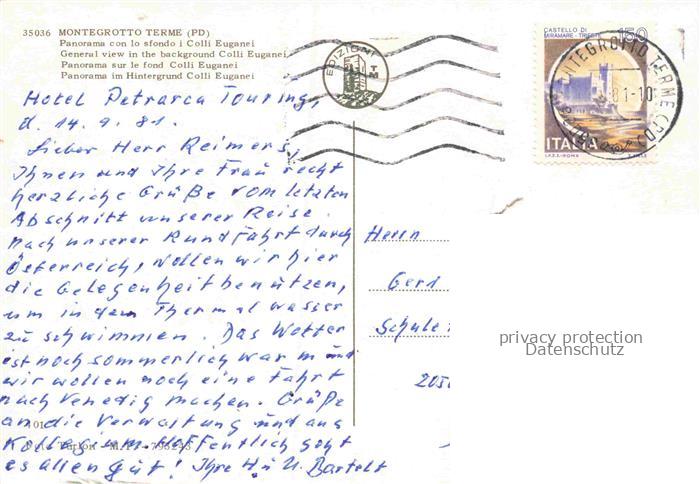 35036 MONTEGROTTO TERME (PD)
Panorama con lo sfondo i Colli Euganei
General view in the background Colli Euganei
Panorama sur le fond Colli Euganei
Panorama im Hintergrund Colli Euganei
EDIZIONI
TM
CASTELLO DI
MIRAMARE - TRIESTE
150
MONTEGROTTO TERME (PD)
81-10
ITALIA
I.P.Z.S.-ROMA
Hotel Petrarca Touring,
d. 14.9.81.
Lieber Herr Reimers,
Ihnen und Ihre Frau recht
herzliche Grüße vom letzten
Abschnitt unserer Reise.
Nach unserer Rundfahrt durch
Österreich, wollen wir hier
die Gelegenheit benützen,
um in dem Thermalwasser
zu schwimmen. Das Wetter
ist noch sommerlich warm und
wir wollen noch eine Fahrt
nach Venedig machen. Grüße
an die Verwaltung und ans
Kollegium. Hoffentlich geht
es allen gut! Ihre H. u. U. Bartelt
Herrn
Gerd
Schule
205
privacy protection
Datenschutz